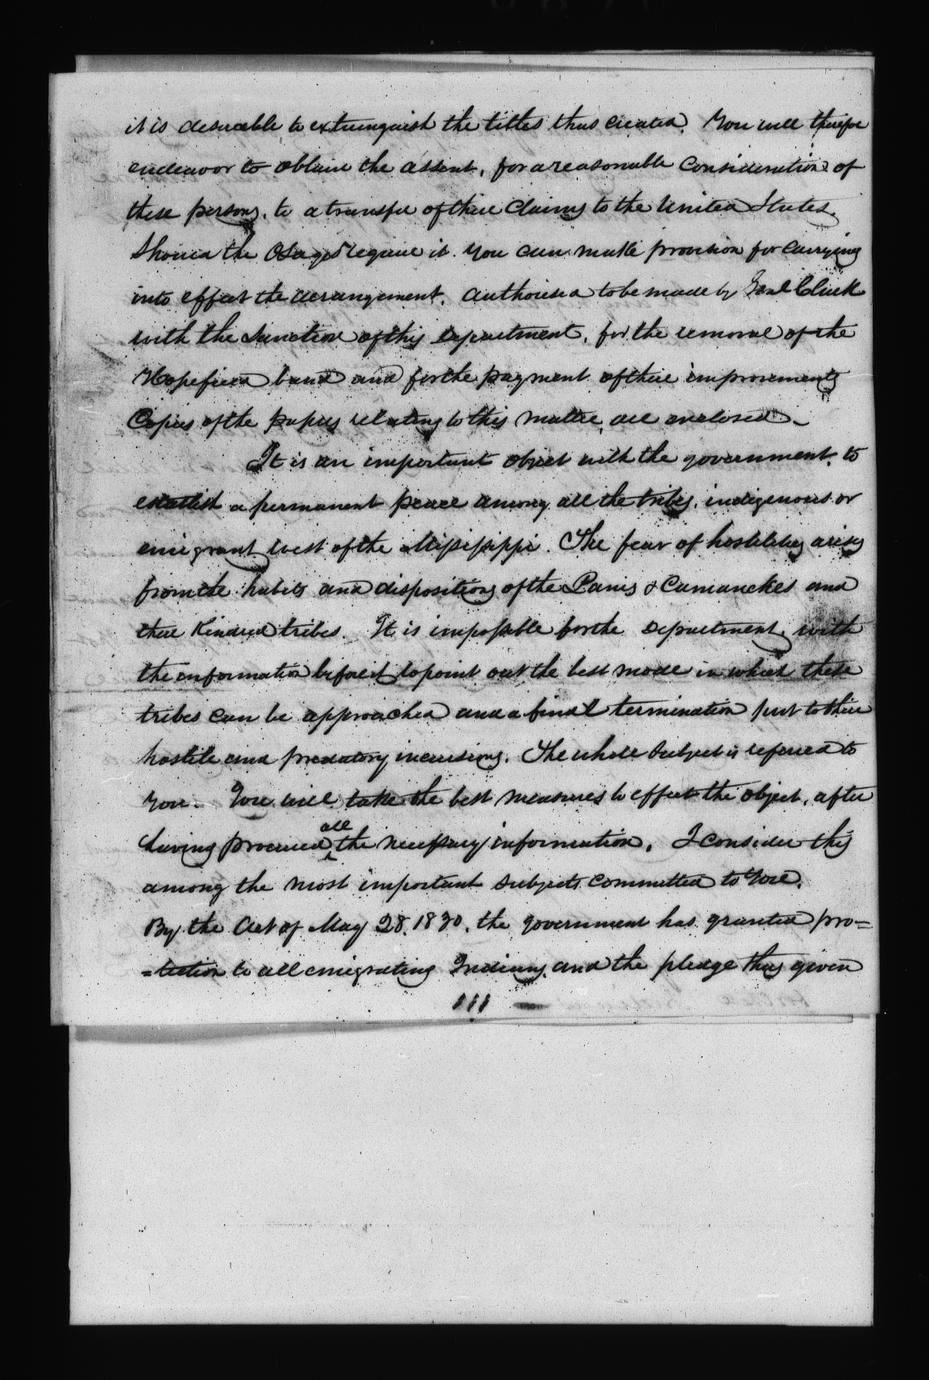 it is desirable to extinguish the titles thus created. You will therefore
endeavor to obtain the assent, for a reasonable consideration of
these persons, to a transfer of their claims to the United States.
Should the Osages require it. You can make provision for carrying
into effect the arrangement, authorised to be made by Genl Clark
with the sanction of this Department, for the removal of the
Hopefield band and for the payment of their improvements
Copies of the papers relating to this matter, are enclosed.
It is an important object with the government, to
establish a permanent peace among all the tribes, indigenous or
emigrant west of the Missisippi. The fear of hostilities arises
from the habits and dispositions of the Panis & Camanches and
their Kindred tribes. It is impossible for the Department, with
the information before it, to point out the best mode in which these
tribes can be approached and a final termination put to their
hostile and predatory incursions. The whole subject is referred to
you. You will take the best measures to effect the object, after
having procured all the necessary information. I consider this
among the most important subjects committed to you.
By the Act of May 28. 1830, the government has granted pro=
=tection to all emigrating Indians, and the pledge thus given
111